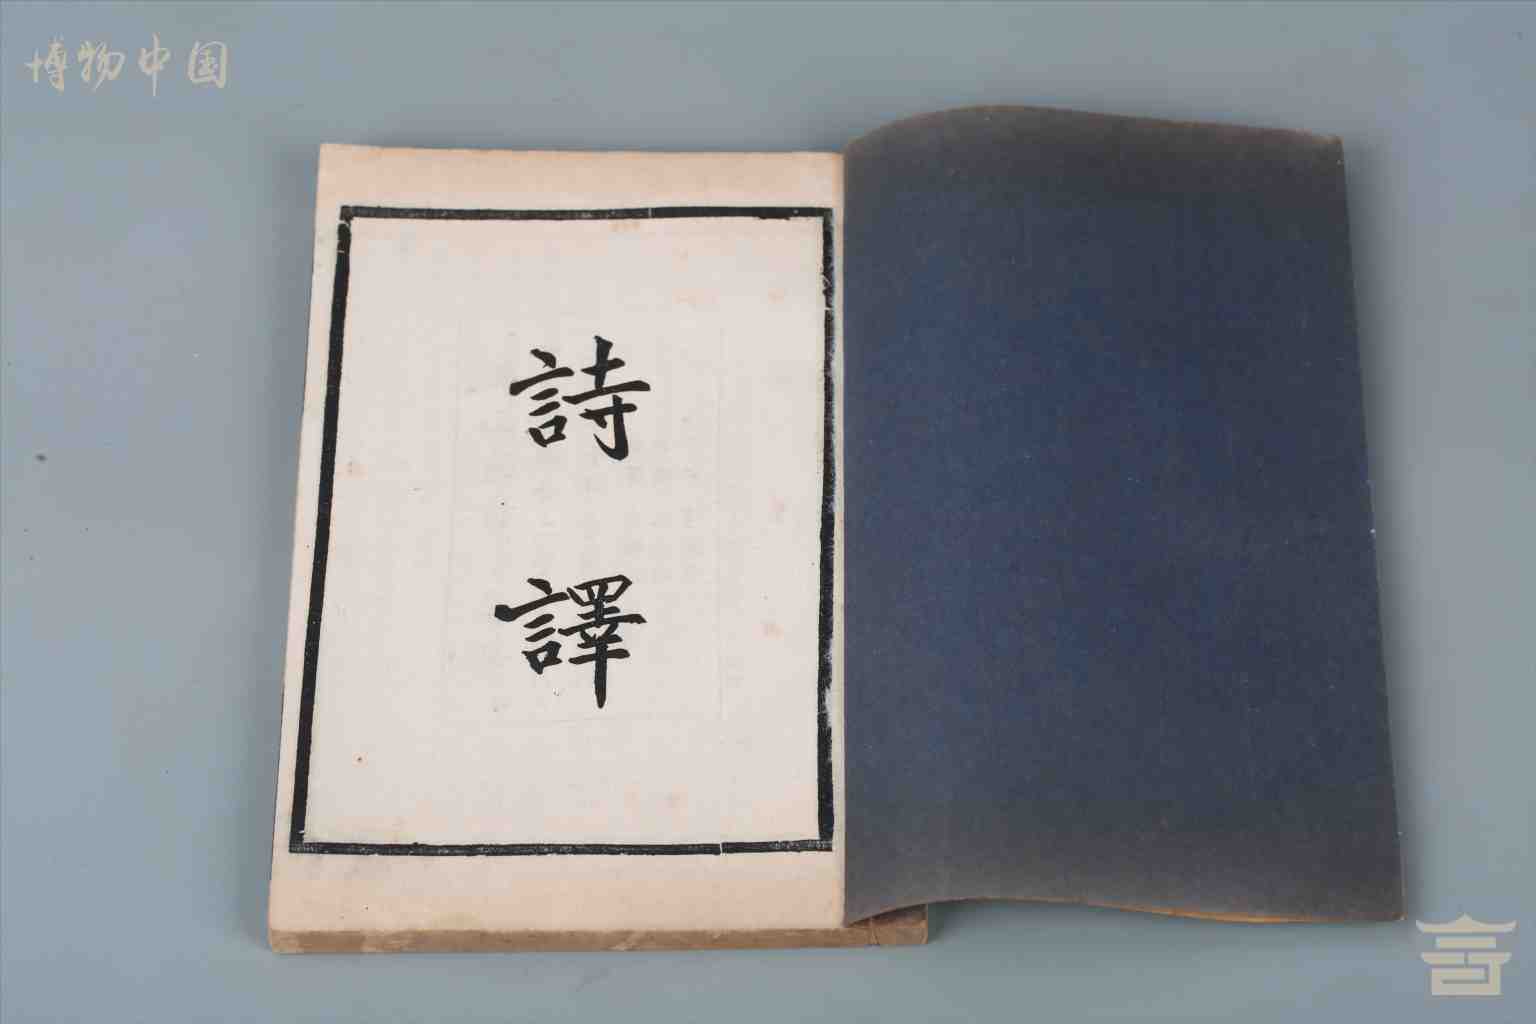 博物中国
詩譯